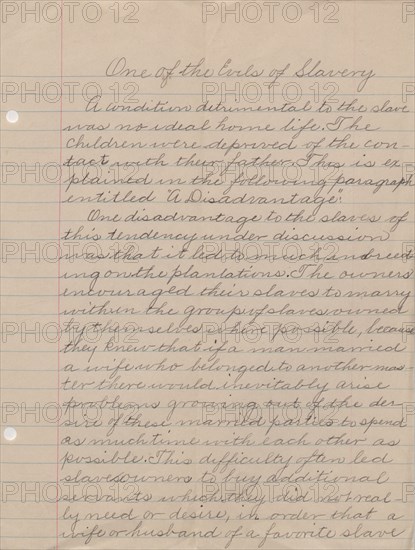 One of the Evils of Slavery
A condition detrimental to the slave
was no ideal home life. The
children were deprived of the con-
tact with their father. This is ex-
plained in the following paragraph
entitled "A Disadvantage".
One disadvantage to the slaves of
this tendency under discussion
was that it led to much inbreed-
ing on the plantations. The owners
encouraged their slaves to marry
within the group of slaves owned
by themselves where possible, because
they knew that if a man married
a wife who belonged to another mas-
ter there would inevitably arise
problems growing out of the de-
sire of these married parties to spend
as much time with each other as
possible. This difficulty often led
slaveowners to buy additional
servants which they did not real-
ly need or desire, in order that a
wife or husband of a favorite slave